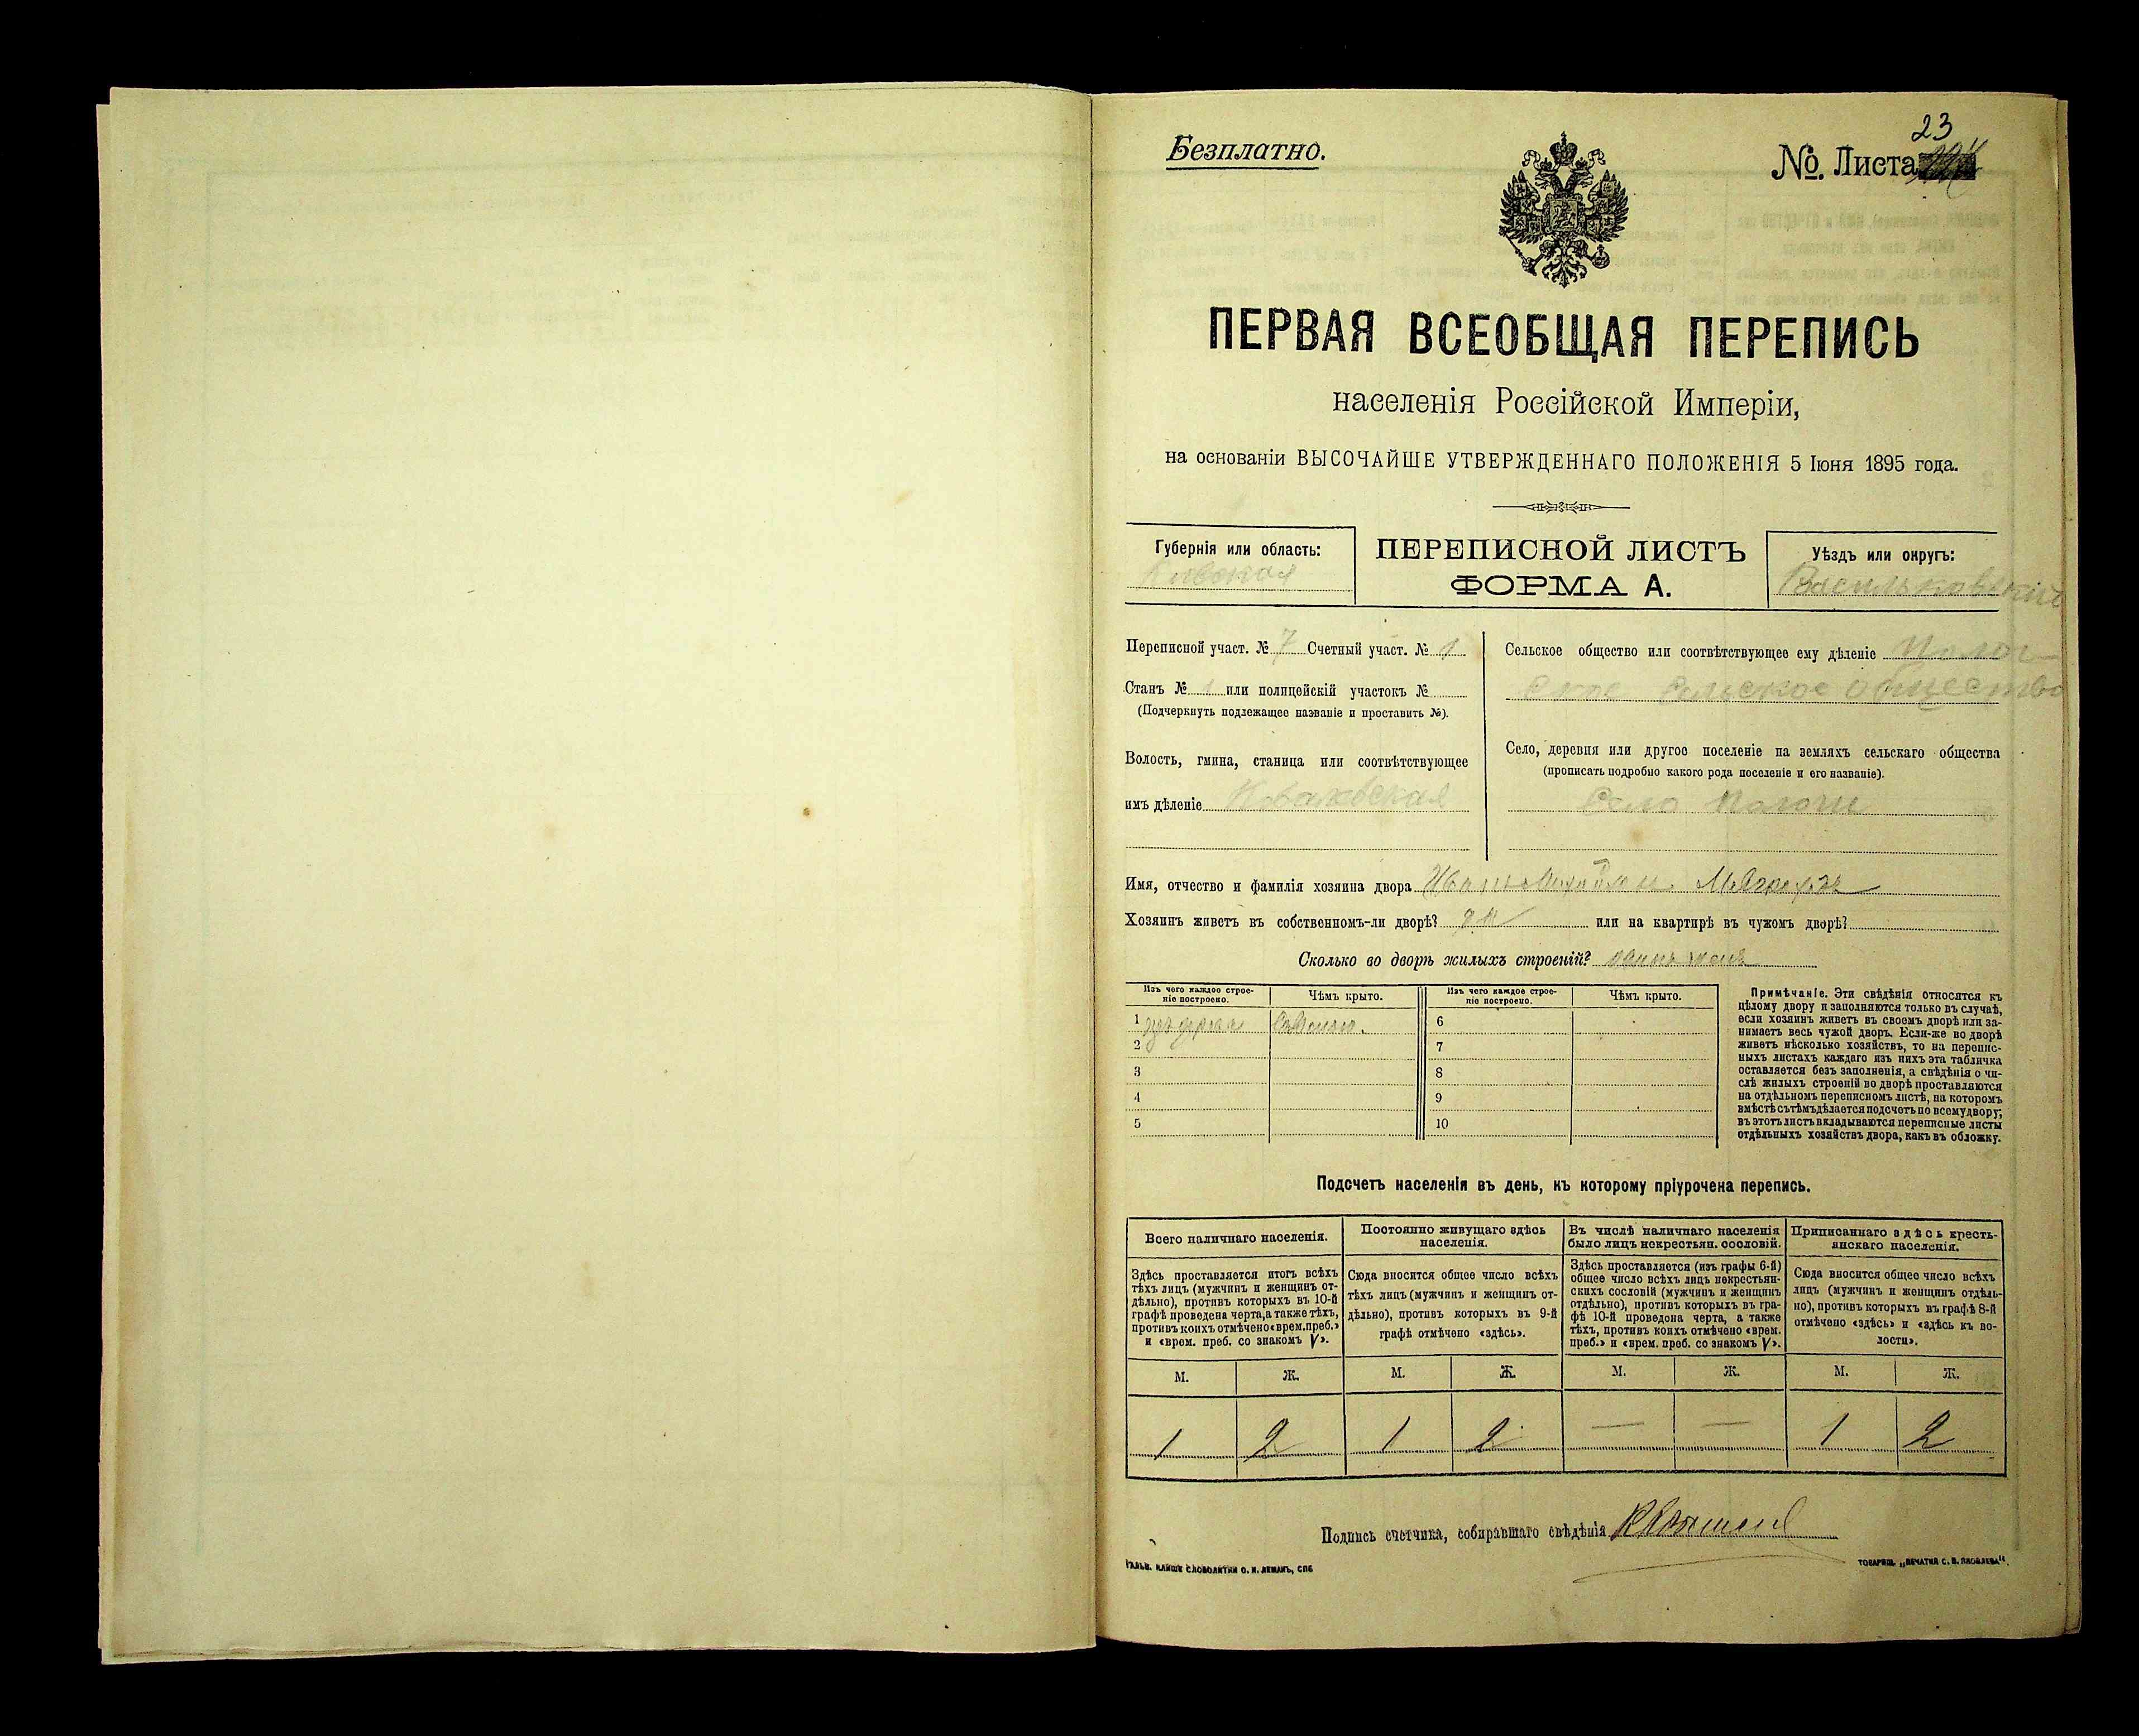 Безплатно.
23
№. Листа
ПЕРВАЯ ВСЕОБЩАЯ ПЕРЕПИСЬ
населенія Россійской Имперіи,
на основаніи ВЫСОЧАЙШЕ УТВЕРЖДЕННАГО ПОЛОЖЕНІЯ 5 Іюня 1895 года.
Губернія или область:
Кіевская
ПЕРЕПИСНОЙ ЛИСТЪ
ФОРМА А.
Уѣздъ или округъ:
Васильковскій
Переписной участ. № 7 Счетный участ. № 1
Станъ № 1 или полицейскій участокъ №
(Подчеркнуть подлежащее названіе и проставить №).
Волость, гмина, станица или соотвѣтствующее
имъ дѣленіе
Сельское общество или соотвѣтствующее ему дѣленіе
сельское общество
Село, деревня или другое поселеніе на земляхъ сельскаго общества
(прописать подробно какого рода поселеніе и его названіе).
Село Пологи
Имя, отчество и фамилія хозяина двора
Хозяинъ живетъ въ собственномъ-ли дворѣ? да или на квартирѣ въ чужомъ дворѣ?
Сколько во дворѣ жилыхъ строеній?
Изъ чего каждое строе-
ніе построено.
Чѣмъ крыто.
Изъ чего каждое строе-
ніе построено.
Чѣмъ крыто.
1 Соломою.
2
3
4
5
6
7
8
9
10
Примѣчаніе. Эти свѣдѣнія относятся къ
цѣлому двору и заполняются только въ случаѣ,
если хозяинъ живетъ въ своемъ дворѣ или за-
нимаетъ весь чужой дворъ. Если-же во дворѣ
живетъ нѣсколько хозяйствъ, то на перепис-
ныхъ листахъ каждаго изъ нихъ эта табличка
оставляется безъ заполненія, а свѣдѣнія о чи-
слѣ жилыхъ строеній во дворѣ проставляются
на отдѣльномъ переписномъ листѣ, на которомъ
вмѣстѣ съ тѣмъ дѣлается подсчетъ по всему двору;
въ этотъ листъ вкладываются переписные листы
отдѣльныхъ хозяйствъ двора, какъ въ обложку.
Подсчетъ населенія въ день, къ которому пріурочена перепись.
Всего наличнаго населенія.
Здѣсь проставляется итогъ всѣхъ
тѣхъ лицъ (мужчинъ и женщинъ от-
дѣльно), противъ которыхъ въ 10-й
графѣ проведена черта, а также тѣхъ,
противъ коихъ отмѣчено «врем. преб.»
и «врем. преб. со знакомъ V».
Постоянно живущаго здѣсь
населенія.
Сюда вносится общее число всѣхъ
тѣхъ лицъ (мужчинъ и женщинъ от-
дѣльно), противъ которыхъ въ 9-й
графѣ отмѣчено «здѣсь».
Въ числѣ наличнаго населенія
было лицъ некрестьян. сословій.
Здѣсь проставляется (изъ графы 6-й)
общее число всѣхъ лицъ некрестьян-
скихъ сословій (мужчинъ и женщинъ
отдѣльно), противъ которыхъ въ гра-
фѣ 10-й проведена черта, а также
тѣхъ, противъ коихъ отмѣчено «врем.
преб.» и «врем. преб. со знакомъ V».
Приписаннаго здѣсь кресть-
янскаго населенія.
Сюда вносится общее число всѣхъ
лицъ (мужчинъ и женщинъ отдѣль-
но), противъ которыхъ въ графѣ 8-й
отмѣчено «здѣсь» и «здѣсь къ во-
лости».
М. Ж. М. Ж. М. Ж. М. Ж.
1 2 1 2 — — 1 2
Подпись счетчика, собиравшаго свѣдѣнія
ГАЛЬВ. КЛИШЕ СЛОВОЛИТНИ О. И. ЛЕМАНЪ, СПБ
ТОВАРИЩ. „ПЕЧАТНЯ С. П. ЯКОВЛЕВА“.